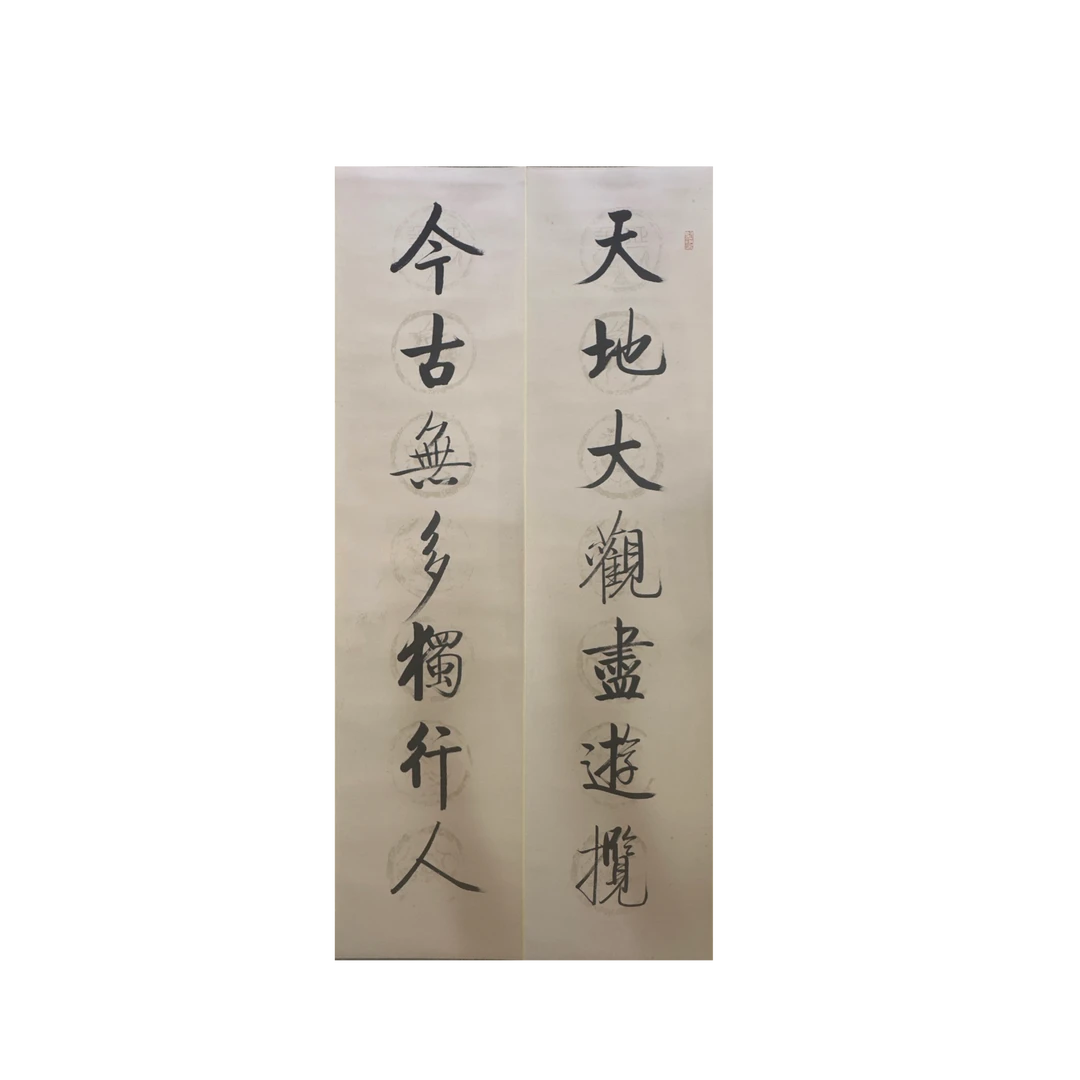 天地大觀盡遊攬
今古無多獨行人